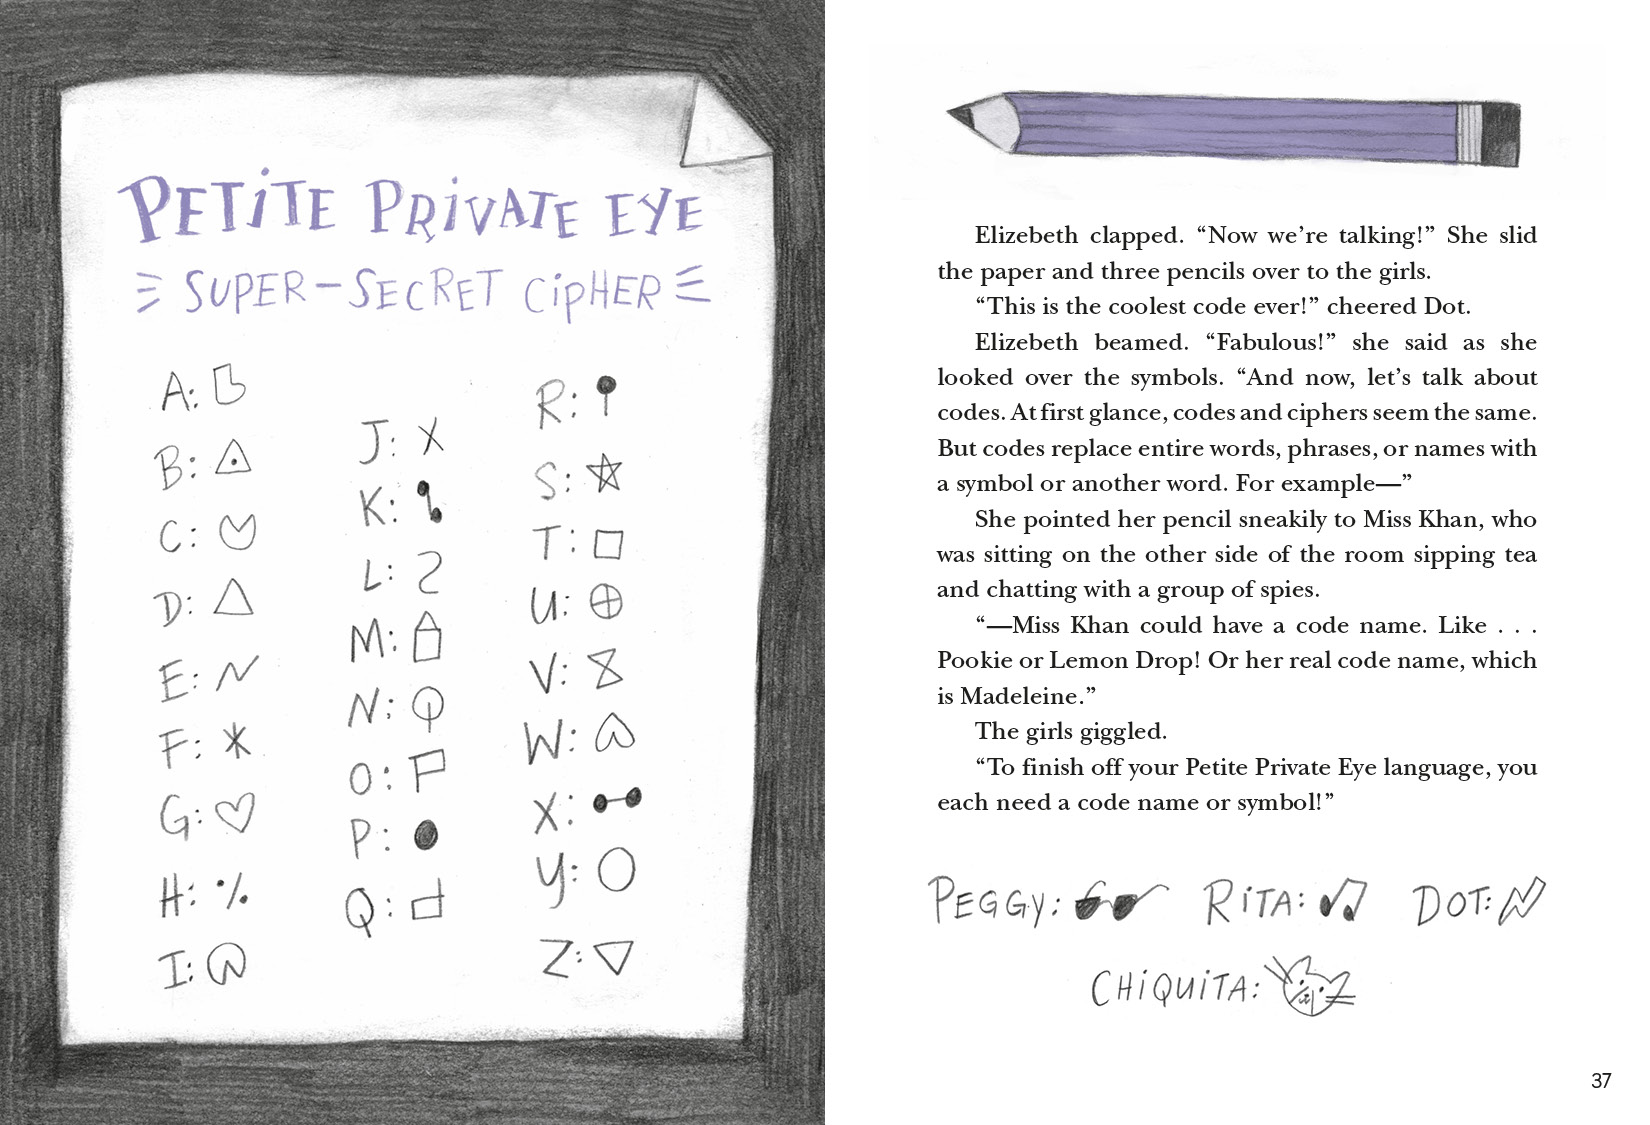 PETITE PRIVATE EYE
SUPER-SECRET CIPHER
A:
B:
C:
D:
E:
F:
G:
H:
I:
J:
K:
L:
M:
N:
O:
P:
Q:
R:
S:
T:
U:
V:
W:
X:
Y:
Z:
Elizebeth clapped. “Now we’re talking!” She slid
the paper and three pencils over to the girls.
“This is the coolest code ever!” cheered Dot.
Elizebeth beamed. “Fabulous!” she said as she
looked over the symbols. “And now, let’s talk about
codes. At first glance, codes and ciphers seem the same.
But codes replace entire words, phrases, or names with
a symbol or another word. For example—”
She pointed her pencil sneakily to Miss Khan, who
was sitting on the other side of the room sipping tea
and chatting with a group of spies.
“—Miss Khan could have a code name. Like . . .
Pookie or Lemon Drop! Or her real code name, which
is Madeleine.”
The girls giggled.
“To finish off your Petite Private Eye language, you
each need a code name or symbol!”
PEGGY: RITA: DOT:
CHIQUITA:
37